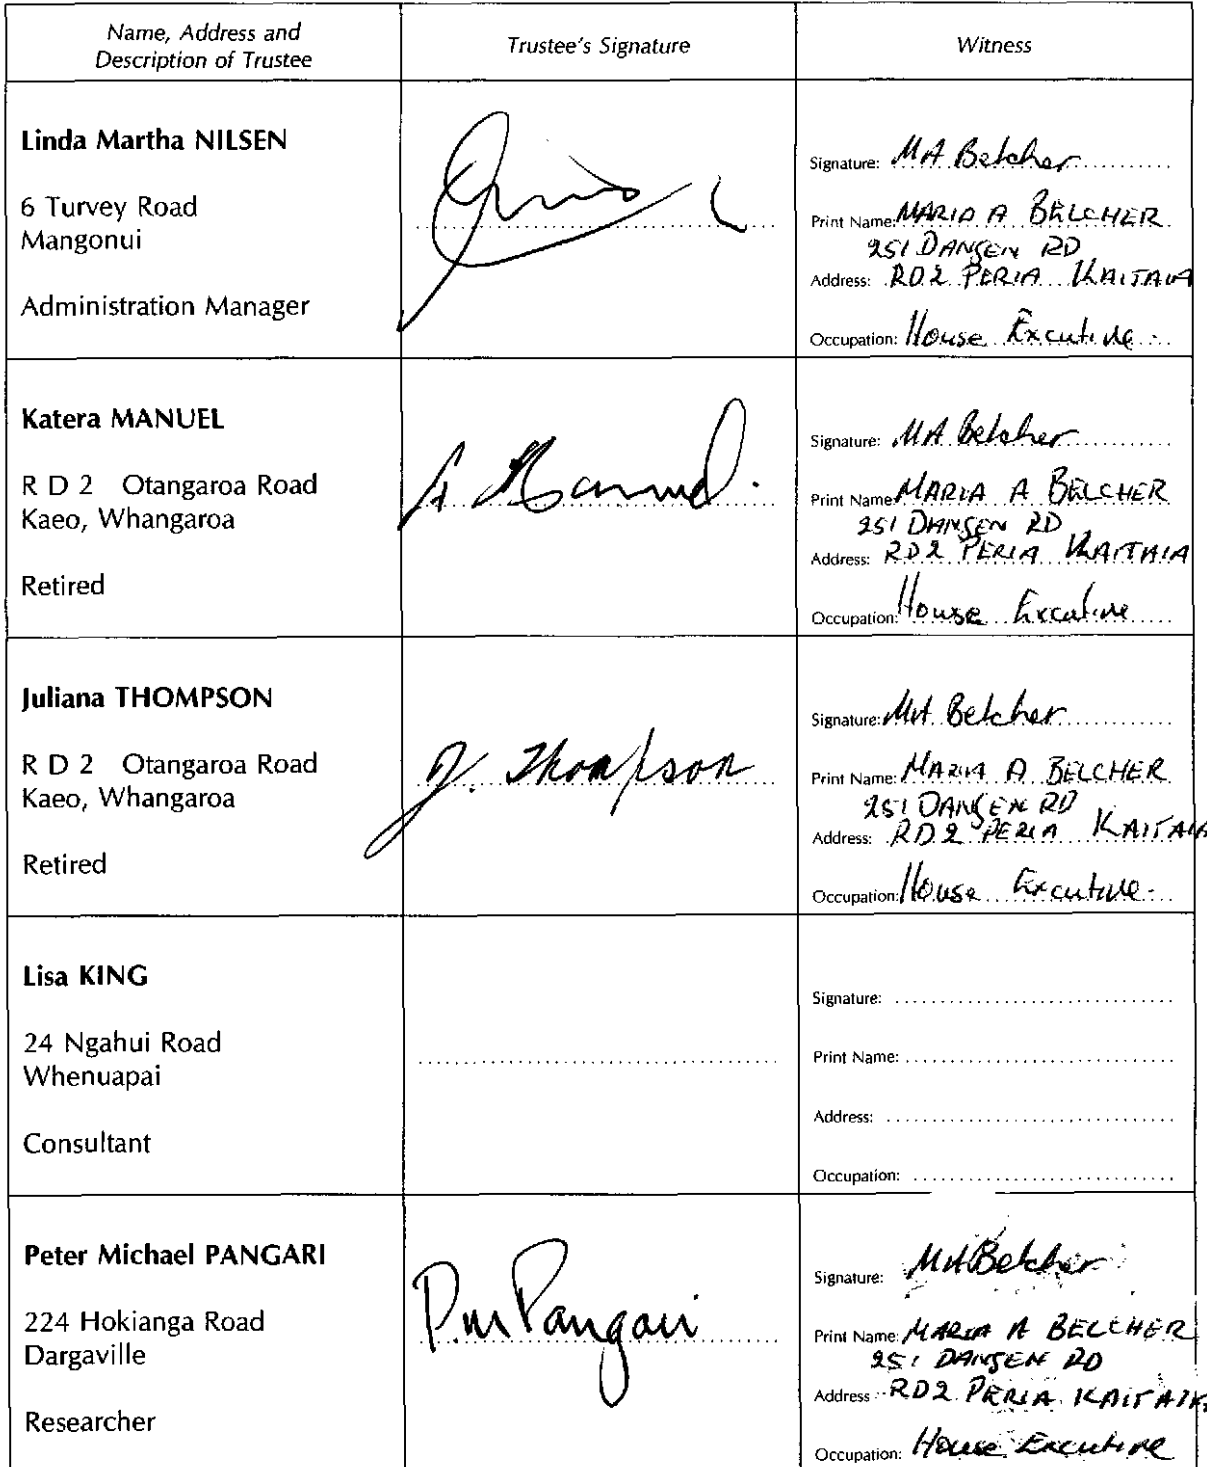 Name, Address and
Description of Trustee
Trustee's Signature
Witness
Linda Martha NILSEN
6 Turvey Road
Mangonui
Administration Manager
Signature: MA Belcher
Print Name: MARIA A BELCHER
251 DANGEN RD
Address: RD2 PERIA KAITAIA
Occupation: House Excutive
Katera MANUEL
R D 2 Otangaroa Road
Kaeo, Whangaroa
Retired
Manuel
Signature: MA Belcher
Print Name: MARIA A BELCHER
251 DANGEN RD
Address: RD2 PERIA KAITAIA
Occupation: House Excutive
Juliana THOMPSON
R D 2 Otangaroa Road
Kaeo, Whangaroa
Retired
J. Thompson
Signature: MA Belcher
Print Name: MARIA A BELCHER
251 DANGEN RD
Address: RD2 PERIA KAITAIA
Occupation: House Excutive
Lisa KING
24 Ngahui Road
Whenuapai
Consultant
Signature:
Print Name:
Address:
Occupation:
Peter Michael PANGARI
224 Hokianga Road
Dargaville
Researcher
P.M Pangari
Signature: MA Belcher
Print Name: MARIA A BELCHER
251 DANGEN RD
Address: RD2 PERIA KAITAIA
Occupation: House Excutive